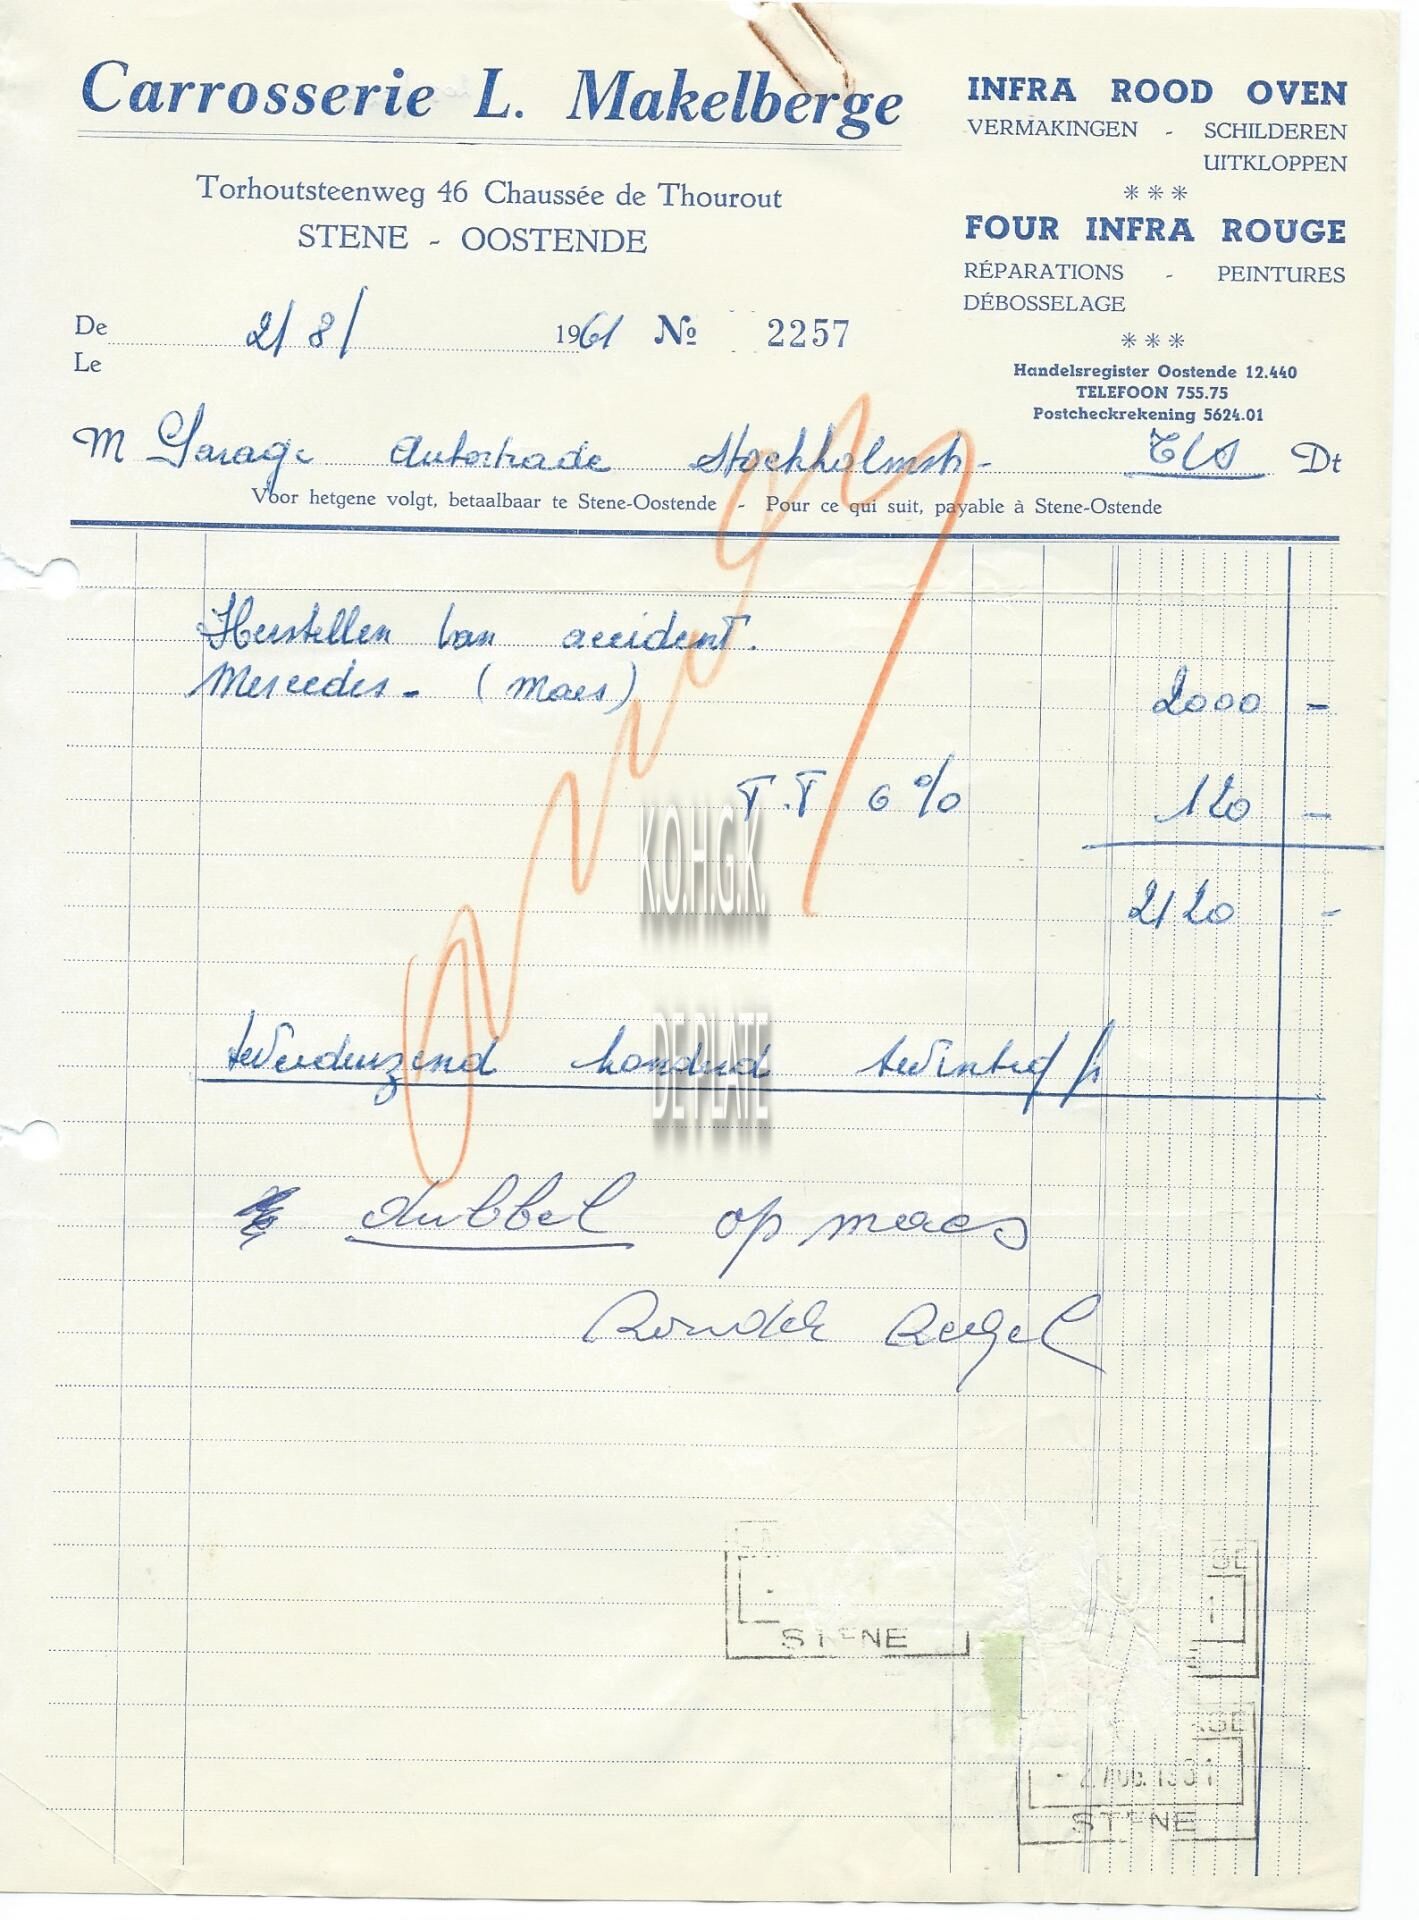 Carrosserie L. Makelberge
Torhoutsteenweg 46 Chaussée de Thourout
STENE - OOSTENDE
INFRA ROOD OVEN
VERMAKINGEN - SCHILDEREN
UITKLOPPEN
***
FOUR INFRA ROUGE
RÉPARATIONS - PEINTURES
DÉBOSSELAGE
***
Handelsregister Oostende 12.440
TELEFOON 755.75
Postcheckrekening 5624.01
De 2/8/ 1961 No 2257
Le
M Garage Autotrade Stockholmstr- Dt
Voor hetgene volgt, betaalbaar te Stene-Oostende - Pour ce qui suit, payable à Stene-Ostende
Herstellen van accident.
Mercedes - (Maes) 2000 -
T.T 6% 120 -
2120 -
K.O.H.G.K.
DE PLATE
tweeduizend honderd twintig fr
dubbel op maes
STENE
AUG. 1961
STENE